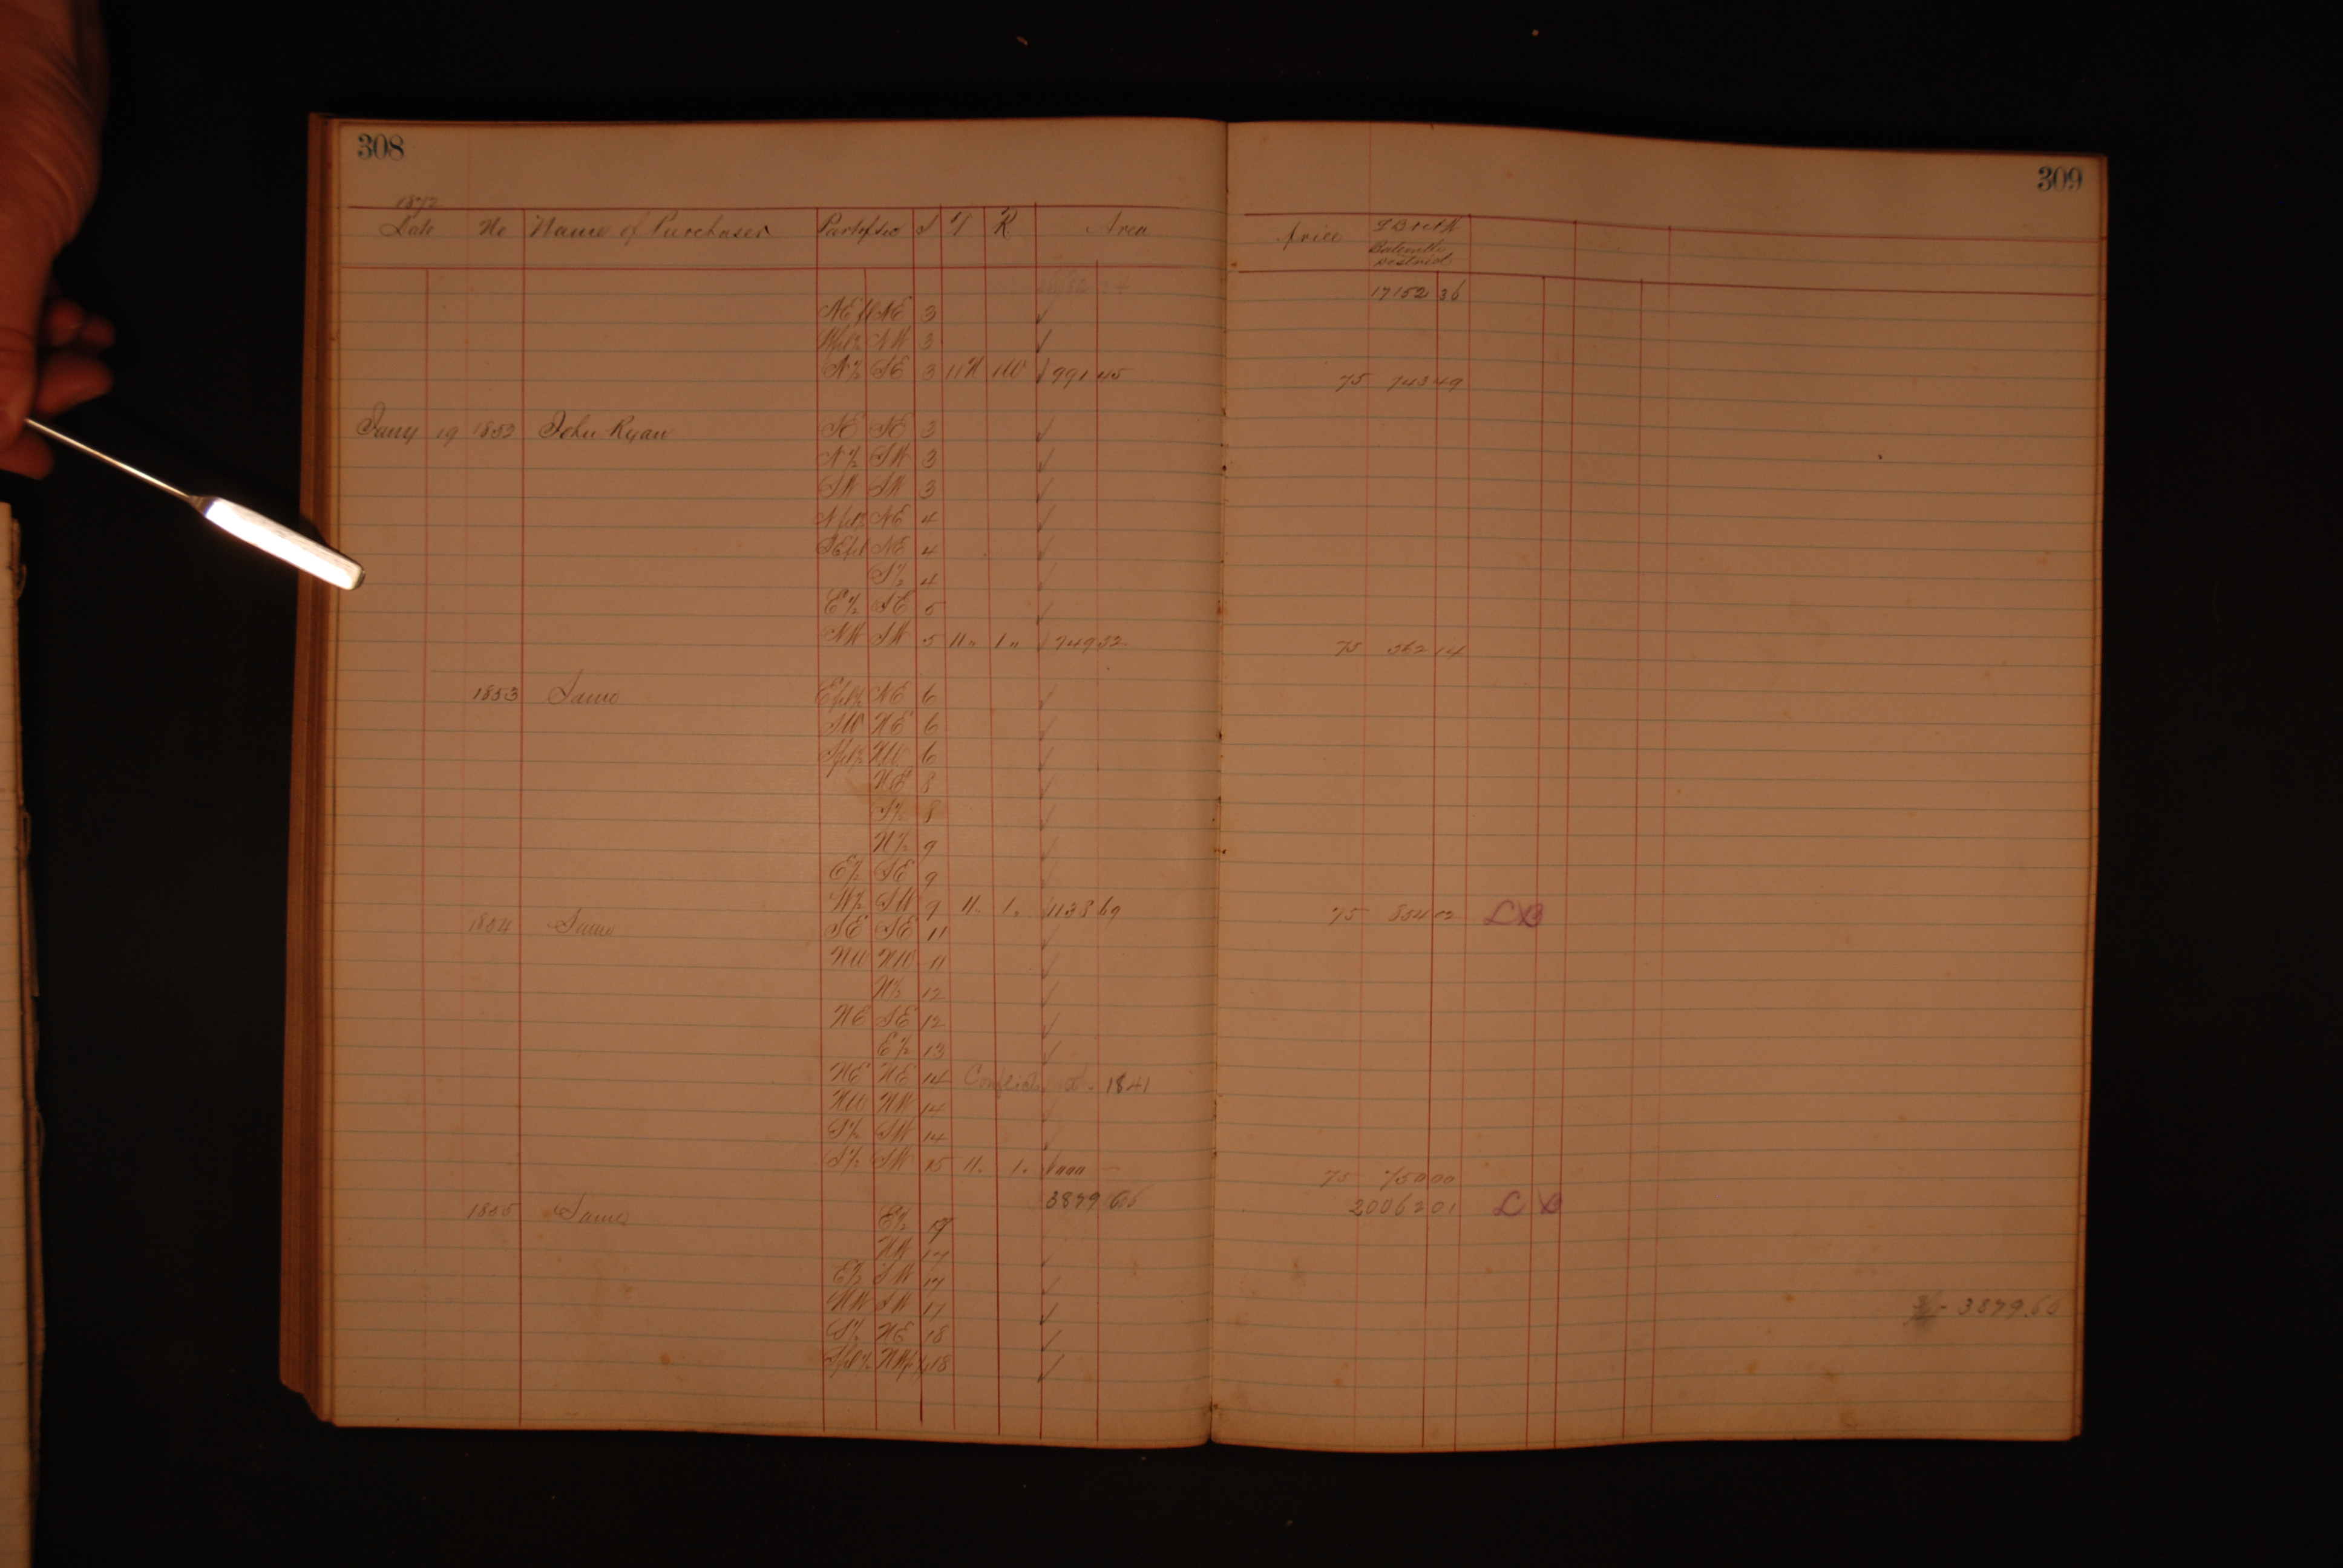 308
309
1872
Date No Name of Purchaser Part of Sec S T R Area Price
District
17152 36
NE fl NE 3
W fl ½ NW 3
N½ SE 3 11N 1W 991 45 75 743 49
Jany 19 1852 John Ryan SE SE 3
N½ SW 3
SW SW 3
N fl ½ NE 4
SE fl NE 4
S½ 4
E½ SE 5
NW SW 5 11 " 1 " 749 52 75 562 14
1853 Same E fl ½ NE 6
SW NE 6
S fl ½ NW 6
NE 8
S½ 8
N½ 9
E½ SE 9
W½ SW 9 11 " 1 " 1138 69 75 854 02
1854 Same SE SE 11
NW NW 11
N½ 12
NE SE 12
E½ 13
NE NE 14 Conflicts 1841
NW NW 14
S½ SW 14
S½ SW 15 11 " 1 " 1000 — 75 750 00
3879 66 20062 01
1855 Same E½ 17
NW 17
E½ SW 17
NW SW 17
3879.66
S½ NE 18
S fl ½ 18